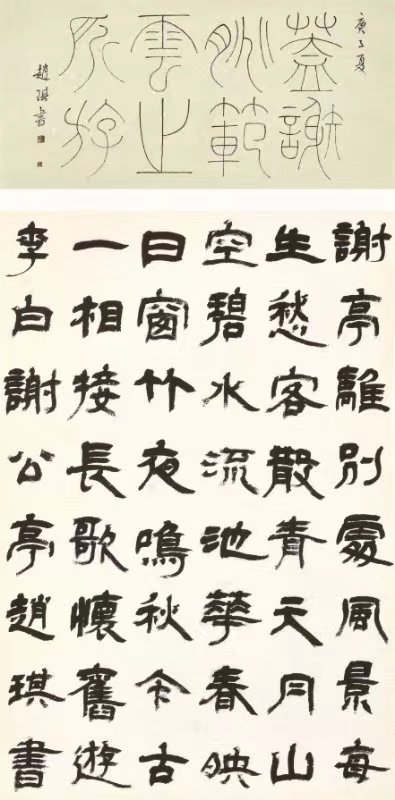 庚子夏
蓋謝
朓範
雲之
所游
趙琪書
謝亭離別處風景每
生愁客散青天月山
空碧水流池華春映
日窗竹夜鳴秋今古
一相接長歌懷舊遊
李白謝公亭趙琪書